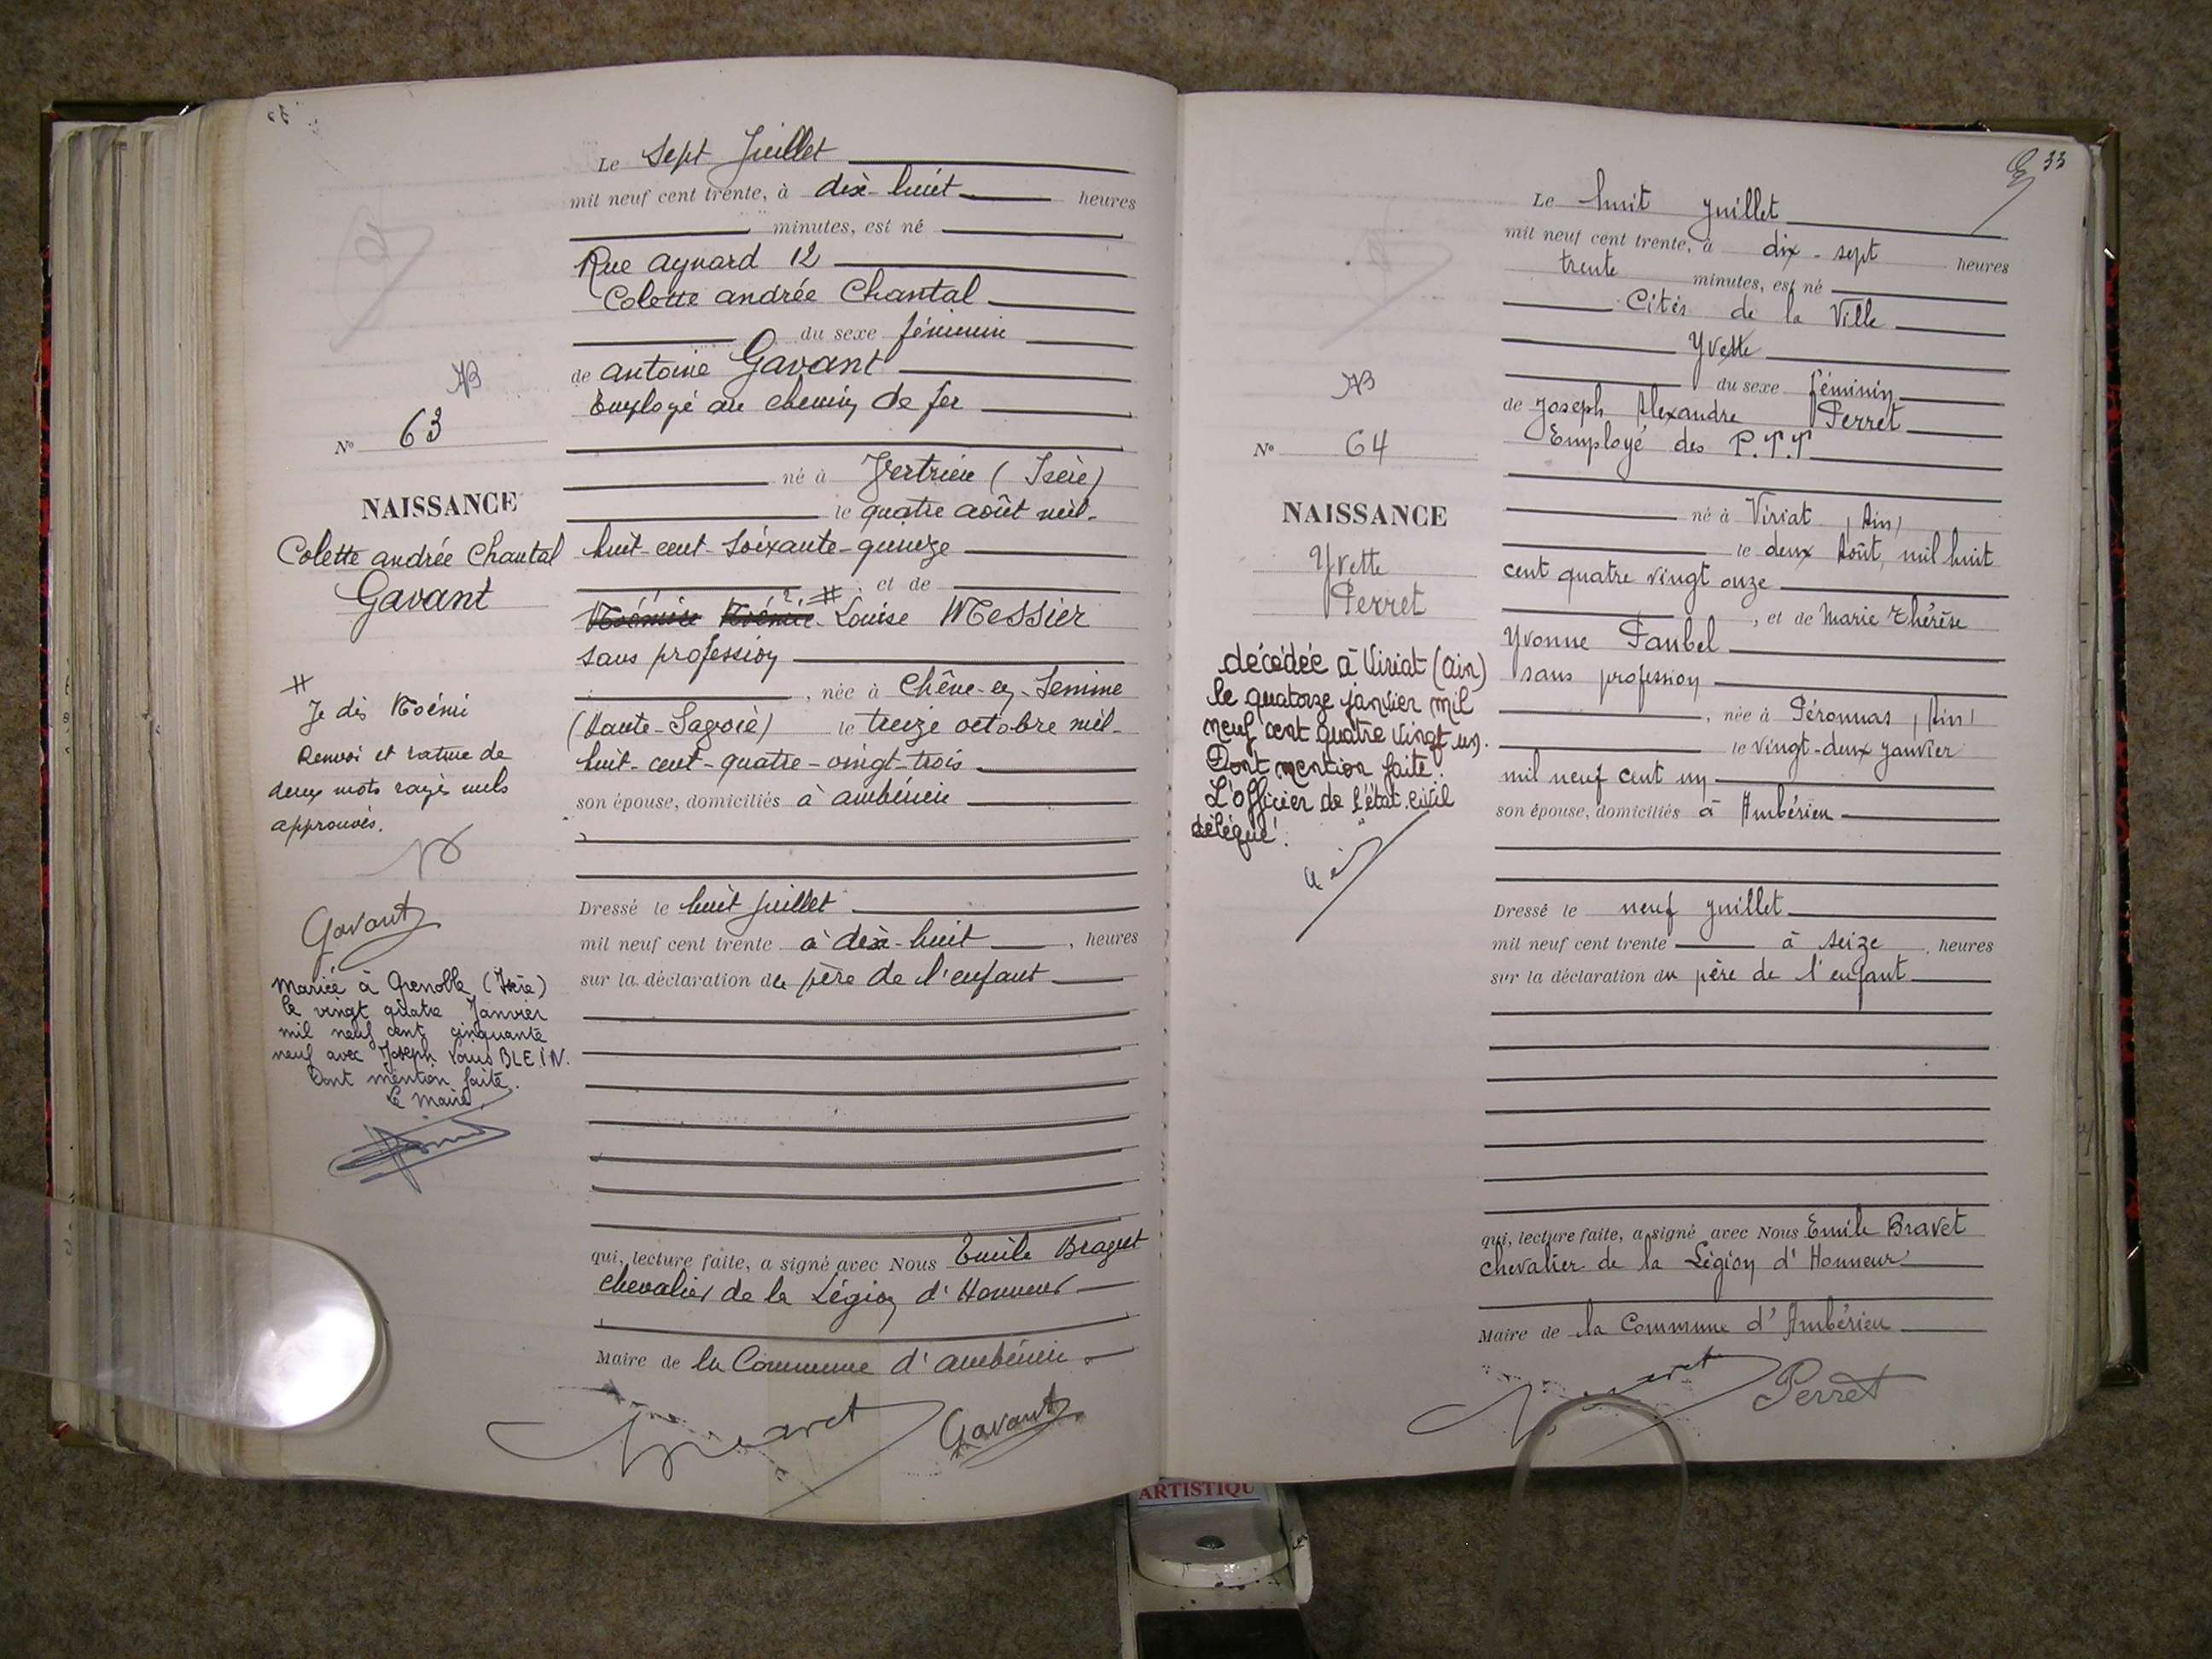 Le Sept Juillet
mil neuf cent trente, à dix-huit heures
minutes, est né
Rue Aynard 12
Colette andrée Chantal
du sexe féminin
de antoine Gavant
Employé au chemin de fer
né à Vertrieu (Isère)
le quatre août mil-
huit-cent-soixante-quinze
et de
Louise Messier
sans profession
, née à Chêne-en-Semine
(Haute-Savoie) le treize octobre mil-
huit-cent-quatre-vingt-trois
son épouse, domiciliés à ambérieu
Dressé le huit juillet
mil neuf cent trente à dix-huit , heures
sur la déclaration du père de l'enfant
qui, lecture faite, a signé avec Nous Emile Bravet
chevalier de la Légion d'Honneur
Maire de la Commune d'ambérieu.
Bravet Gavant
N° 63
NAISSANCE
Colette andrée Chantal
Gavant
#
Je dis Noémi
Renvoi et rature de
deux mots rayés nuls
approuvés.
Gavant
Mariée à Grenoble (Isère)
le vingt quatre Janvier
mil neuf cent cinquante
neuf avec Joseph Louis BLEIN.
Dont mention faite.
Le Maire
33
Le huit juillet
mil neuf cent trente, à dix-sept heures
trente minutes, est né
Cités de la Ville
Yvette
du sexe féminin
de Joseph Alexandre Perret
Employé des P.T.T
né à Viriat (Ain)
le deux Août, mil huit
cent quatre vingt onze
, et de Marie Thérèse
Yvonne Paubel
sans profession
, née à Péronnas (Ain)
le vingt-deux janvier
mil neuf cent un
son épouse, domiciliés à Ambérieu
Dressé le neuf juillet
mil neuf cent trente à seize , heures
sur la déclaration du père de l'enfant
qui, lecture faite, a signé avec Nous Emile Bravet
chevalier de la Légion d'Honneur
Maire de la Commune d'Ambérieu
Bravet Perret
N° 64
NAISSANCE
Yvette
Perret
décédée à Viriat (Ain)
le quatorze janvier mil
neuf cent quatre vingt un.
Dont mention faite.
L'officier de l'état civil
délégué.
ARTISTIQU